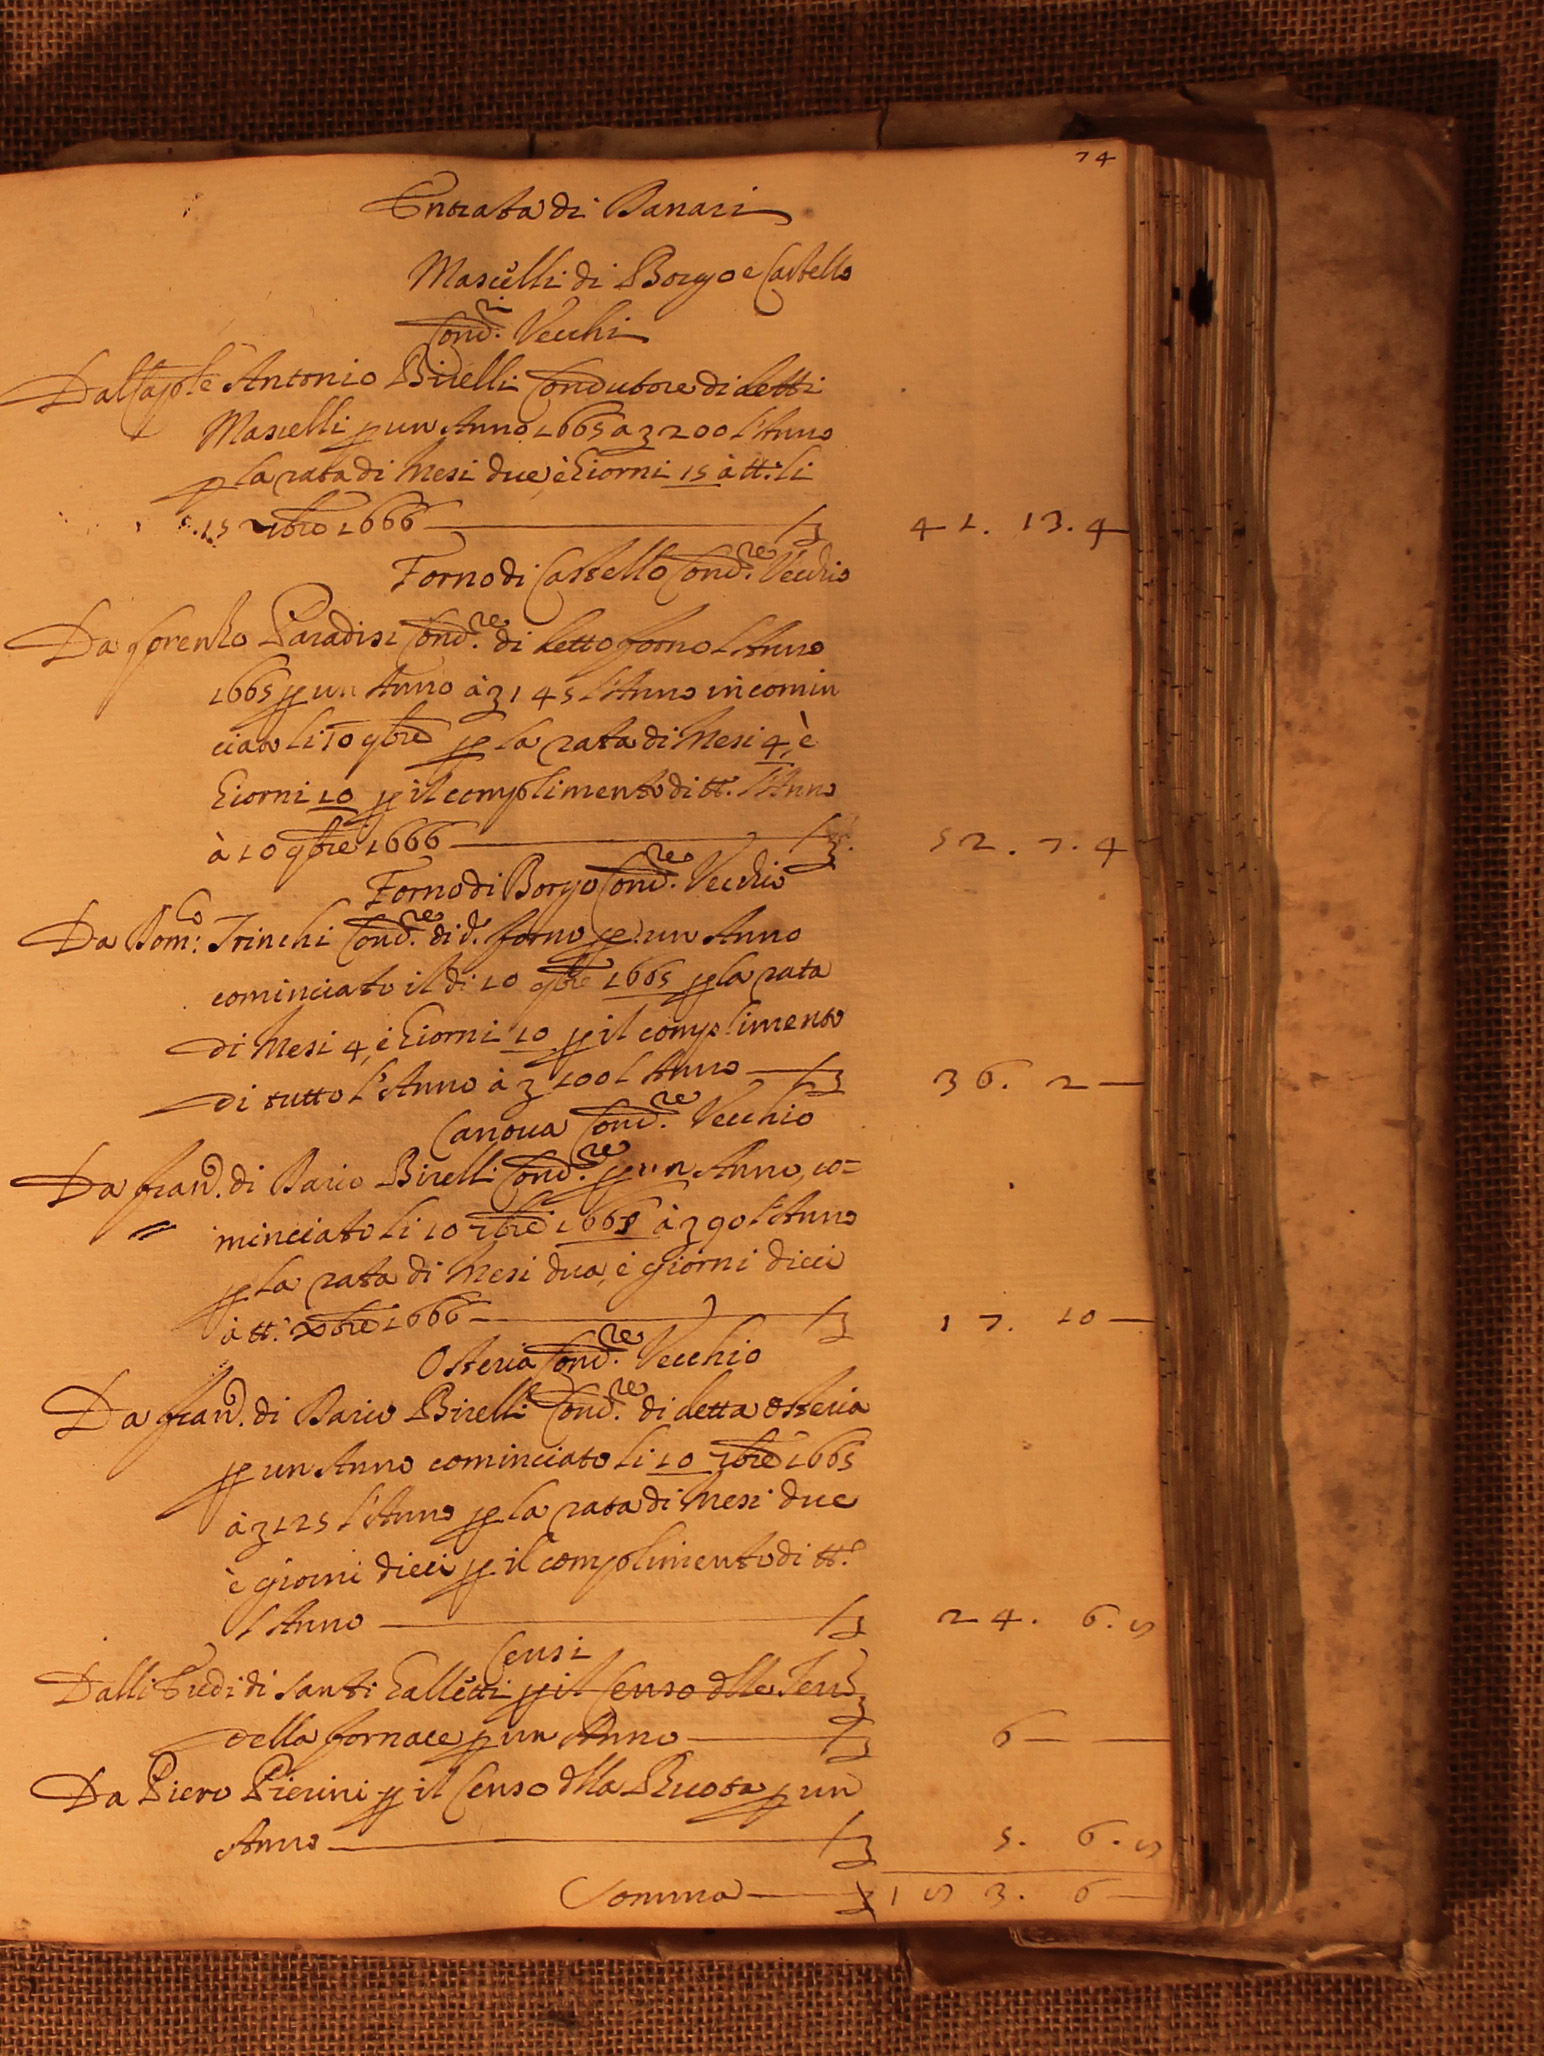 74
Entrata di Danari
Macelli di Borgo e Castello
Cond.ri Vecchi
Dal Antonio Birelli Condutore di detti
Macelli p un Anno 1665 a 200 l'Anno
p la rata di Mesi due, è Giorni 15 à tt.li
15 1666 41. 13. 4
Forno di Castello Cond.re Vecchio
Da Lorenzo Paradisi Cond.re di detto forno l'Anno
1665 p un Anno à 145 l'Anno incomin
ciato li 10 9bre p la rata di Mesi 4, è
Giorni 10 p il complimento di tt. l'Anno
à 10 9bre 1666 52. 7. 4
Forno di Borgo Cond.re Vecchio
Da Dom:co Trinchi Cond.re di d. forno p un Anno
cominciato il di 10 9bre 1665 p la rata
di Mesi 4, è Giorni 10 p il complimento
di tutto l'Anno à 100 l'Anno 36. 2 —
Canova Cond.re Vecchio
Da fran. di Dario Birelli Cond.re p un Anno, co=
minciato li 10 7bre à 90 l'Anno
p la rata di Mesi dua, è giorni dieci
à tt. 1666 17. 10 —
Osteria Cond.re Vecchio
Da fran. di Dario Birelli Cond.re di detta Osteria
p un Anno cominciato li 10 7bre 1665
à 125 l'Anno p la rata di Mesi due
è giorni dieci p il complimento di tt.
l'Anno 24. 6. 8
Censi
Dalli Eredi di Santi Galletti p il Censo dlle
della fornace p un Anno 6 — —
Da Piero Pierini p il Censo dlla p un
Anno 5. 6. 8
Somma 183. 6 —